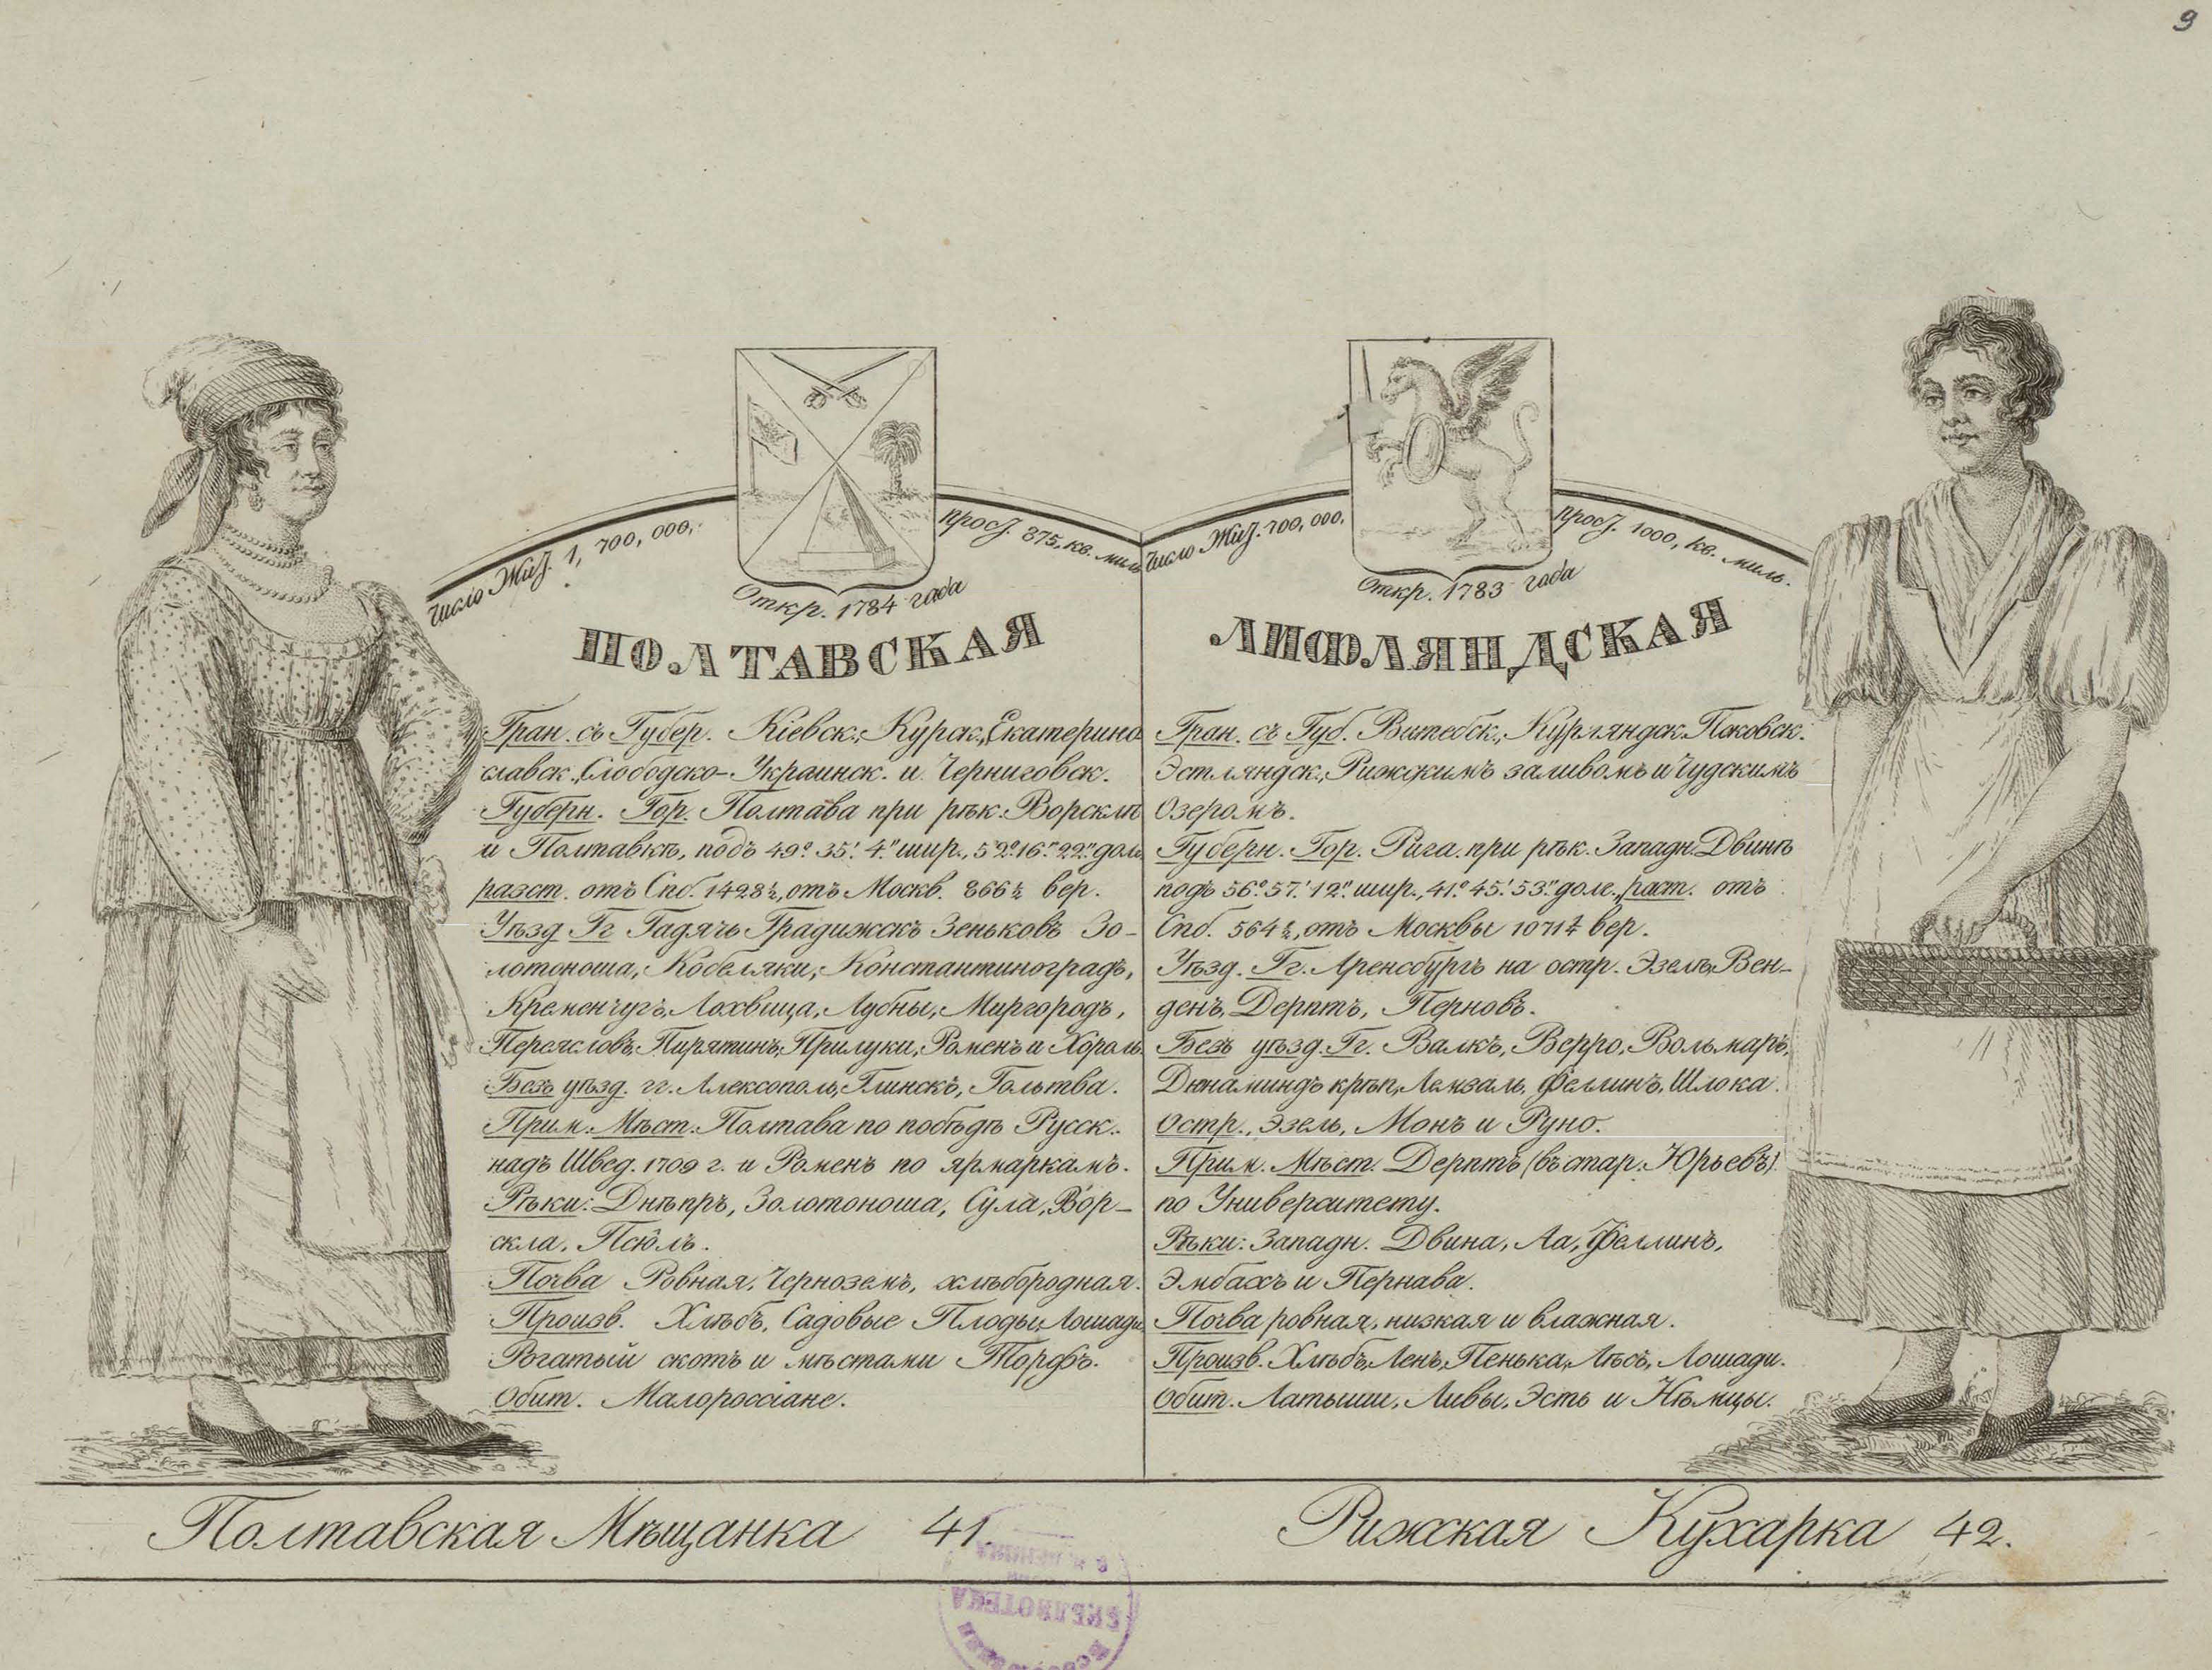 9
Число Жит. 1,700,000,
прост. 875, кв. миль
Откр. 1784 года
ПОЛТАВСКАЯ
Гран. съ Губер. Кіевск., Курск., Екатерино
славск., Слободско-Украинск. и Черниговск.
Губерн. Гор. Полтава при рѣк. Ворсклѣ
и Полтавкѣ, подъ 49° 35' 4" шир., 52° 16' 22" дол.
разст. отъ Спб. 1428½, отъ Москв. 866½ вер.
Уѣзд. Гг. Гадячь Градижскъ Зеньковъ Зо-
лотоноша, Кобеляки, Константиноградъ,
Кременчугъ, Лохвица, Лубны, Миргородъ,
Переясловъ, Пирятинъ, Прилуки, Роменъ и Хороль
Безъ уѣзд. гг. Алексополь, Глинскъ, Гольтва.
Прим. Мѣст. Полтава по побѣдѣ Русск.
надъ Швед. 1709 г. и Роменъ по ярмаркамъ.
Рѣки: Днѣпръ, Золотоноша, Сула, Вор-
скла, Псiолъ.
Почва Ровная, Черноземъ, хлѣбородная.
Произв. Хлѣбъ, Садовые Плоды, Лошади
Рогатый скотъ и мѣстами Торфъ.
Обит. Малороссіане.
Полтавская Мѣщанка 41.
Число Жит. 700,000,
прост. 1000, кв. миль.
Откр. 1783 года
ЛИФЛЯНДСКАЯ
Гран. съ Губ. Витебск., Курляндск. Псковск.
Эстляндск., Рижскимъ заливомъ и Чудскимъ
Озеромъ.
Губерн. Гор. Рига при рѣк. Западн. Двинѣ
подъ 56° 57' 12" шир., 41° 45' 53" дол., раст. отъ
Спб. 564½, отъ Москвы 1071½ вер.
Уѣзд. Гг. Аренсбургъ на остр. Эзелѣ, Вен-
денъ, Дерптъ, Перновъ.
Безъ уѣзд. Гг. Валкъ, Верро, Вольмаръ,
Дюнаминдъ крѣп., Лемзаль, Феллинъ, Шлока.
Остр., Эзель, Монъ и Руно.
Прим. Мѣст. Дерптъ (въ стар. Юрьевъ)
по Университету.
Рѣки: Западн. Двина, Аа, Феллинъ,
Эмбахъ и Пернава.
Почва ровная, низкая и влажная.
Произв. Хлѣбъ, Ленъ, Пенька, Лѣсъ, Лошади.
Обит. Латыши, Ливы, Эсть и Нѣмцы.
Рижская Кухарка 42.
БИБЛИОТЕКА